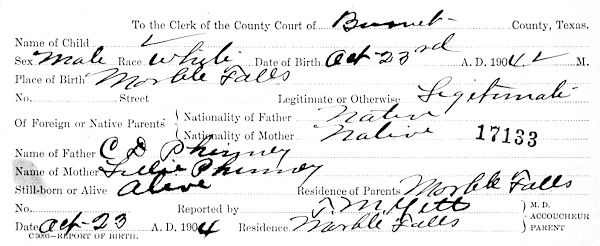 To the Clerk of the County Court of Burnet County, Texas.
Name of Child
Sex Male Race White Date of Birth Oct 23rd A. D. 1904 2 M.
Place of Birth Marble Falls
No. Street Legitimate or Otherwise Legitimate
Of Foreign or Native Parents
Nationality of Father Native
Nationality of Mother Native 17133
Name of Father C D Phinney
Name of Mother Lillie Phinney
Still-born or Alive Alive Residence of Parents Marble Falls
No. Reported by J. M. Yett M. D.
ACCOUCHEUR
PARENT
Date Oct-23 A. D. 1904 Residence Marble Falls
REPORT OF BIRTH.